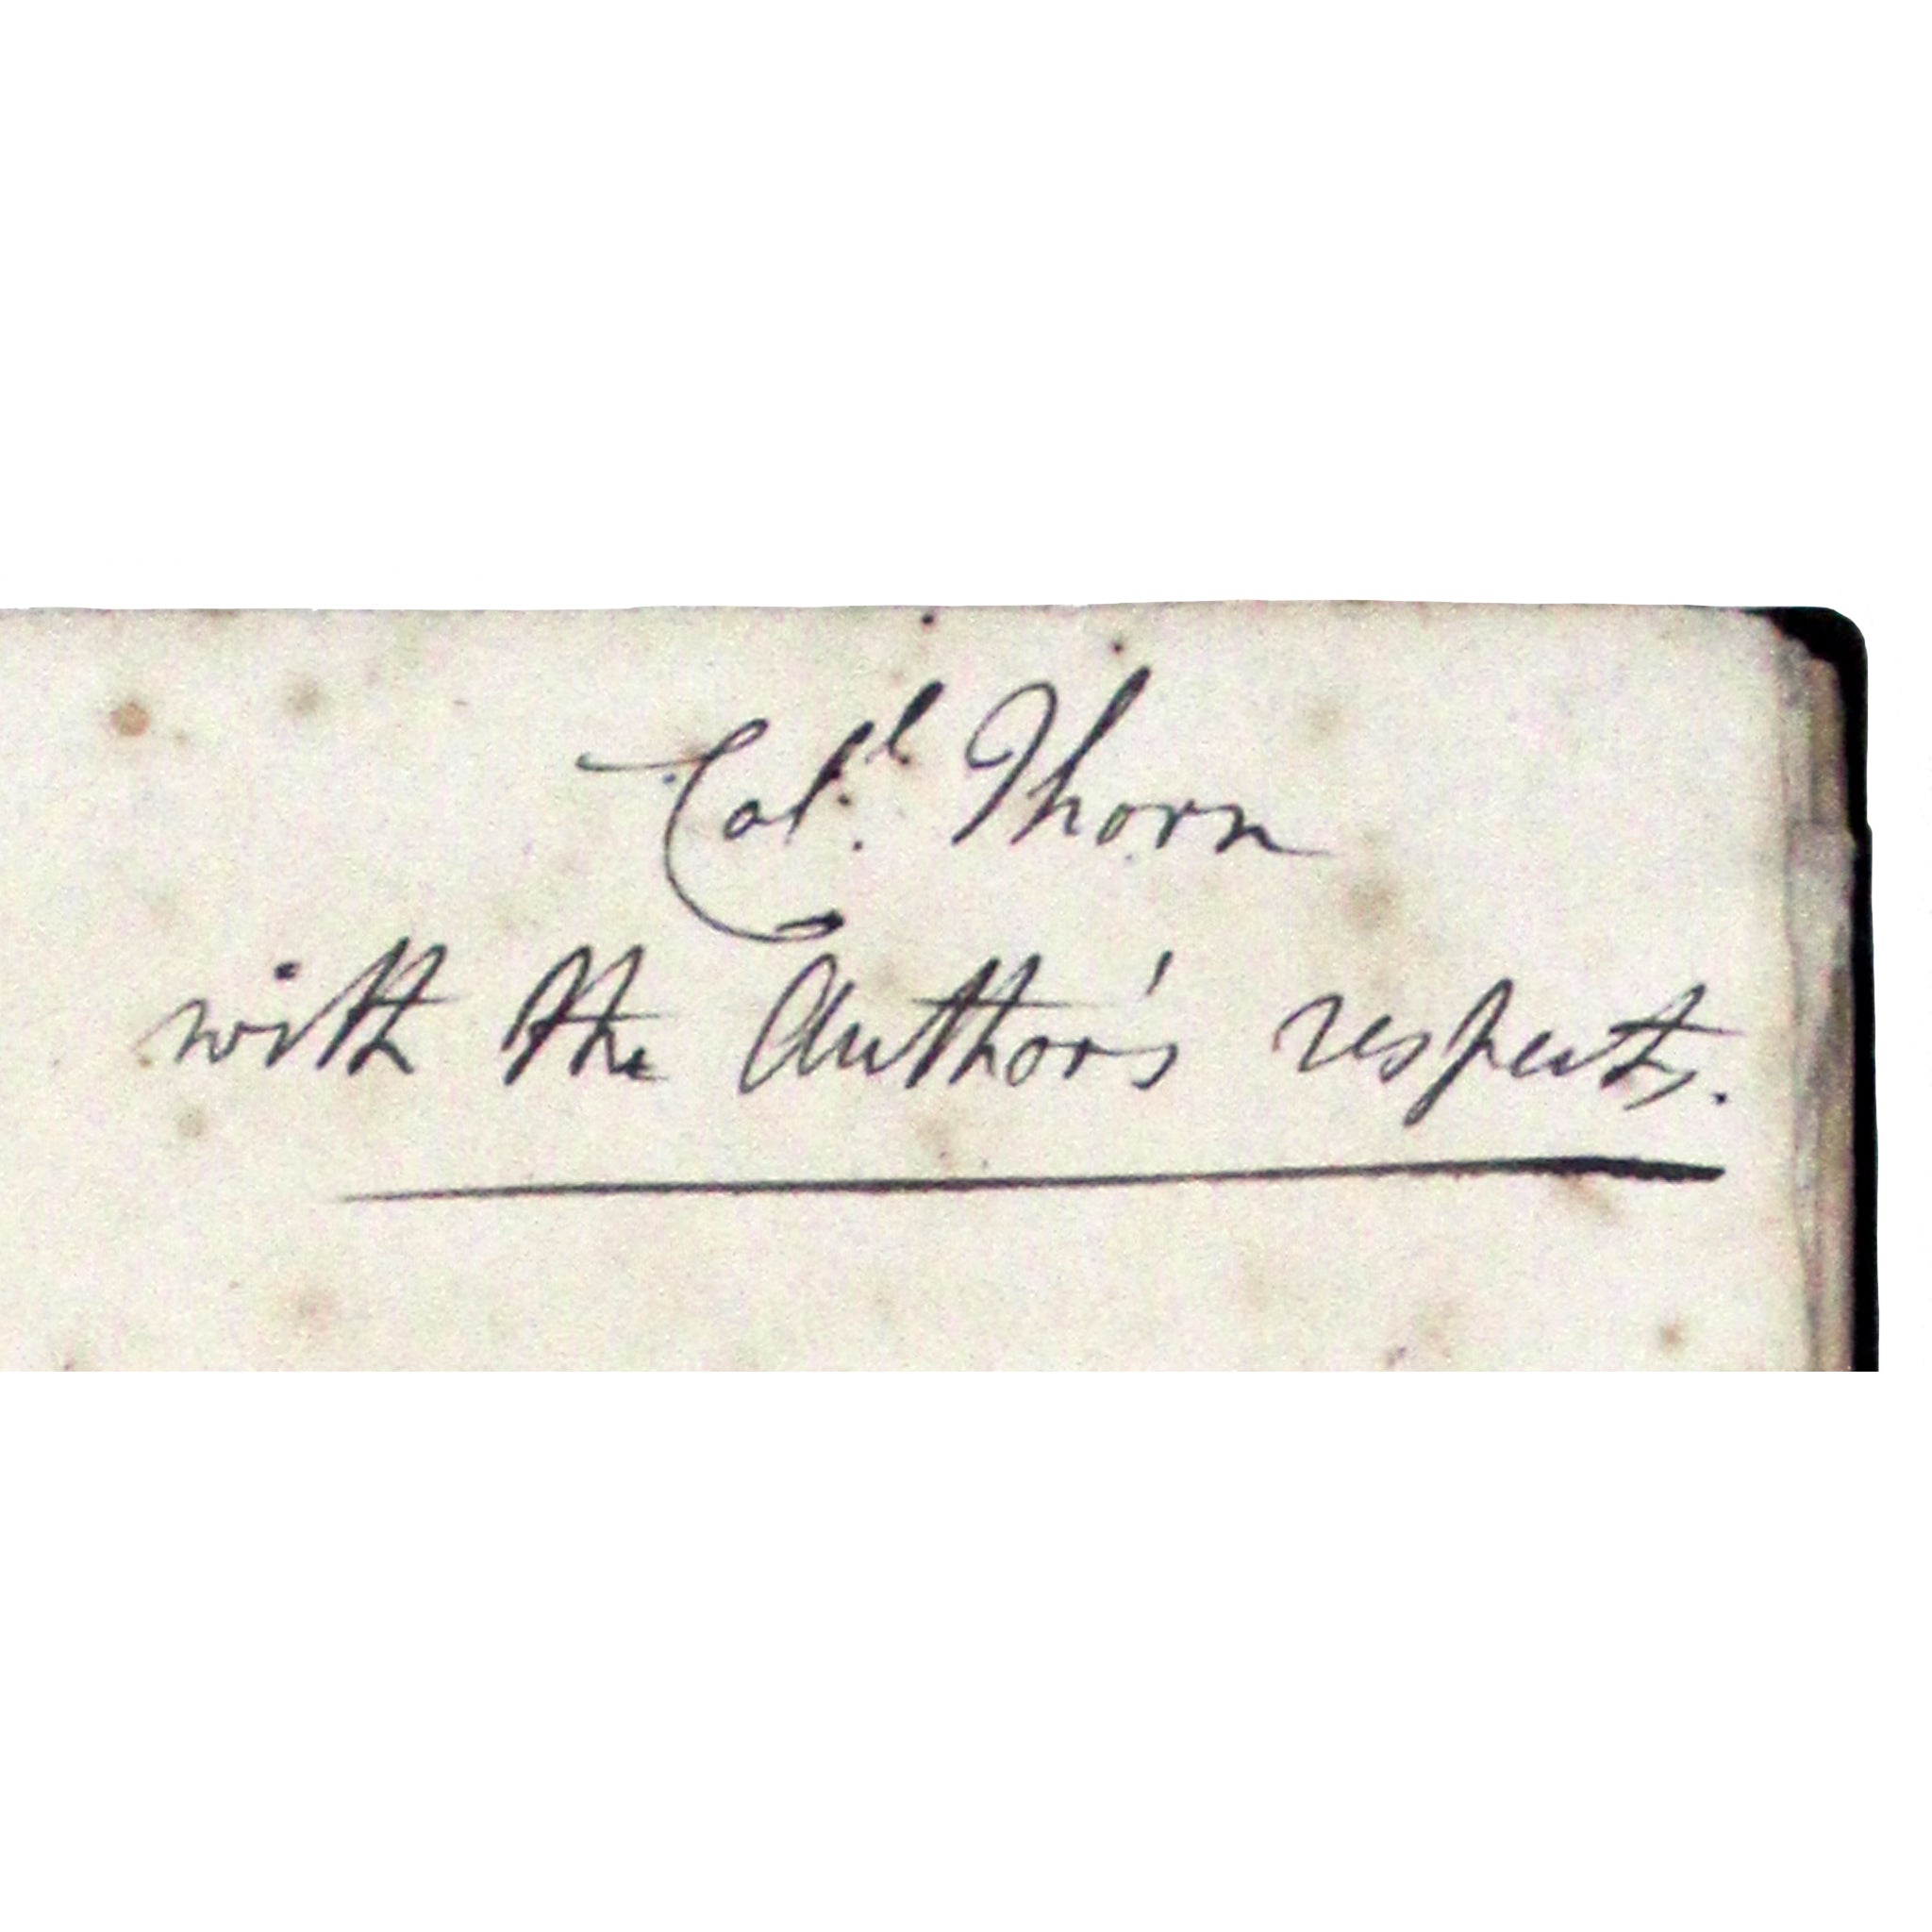 Col.l Thorn
with the Author's respects.